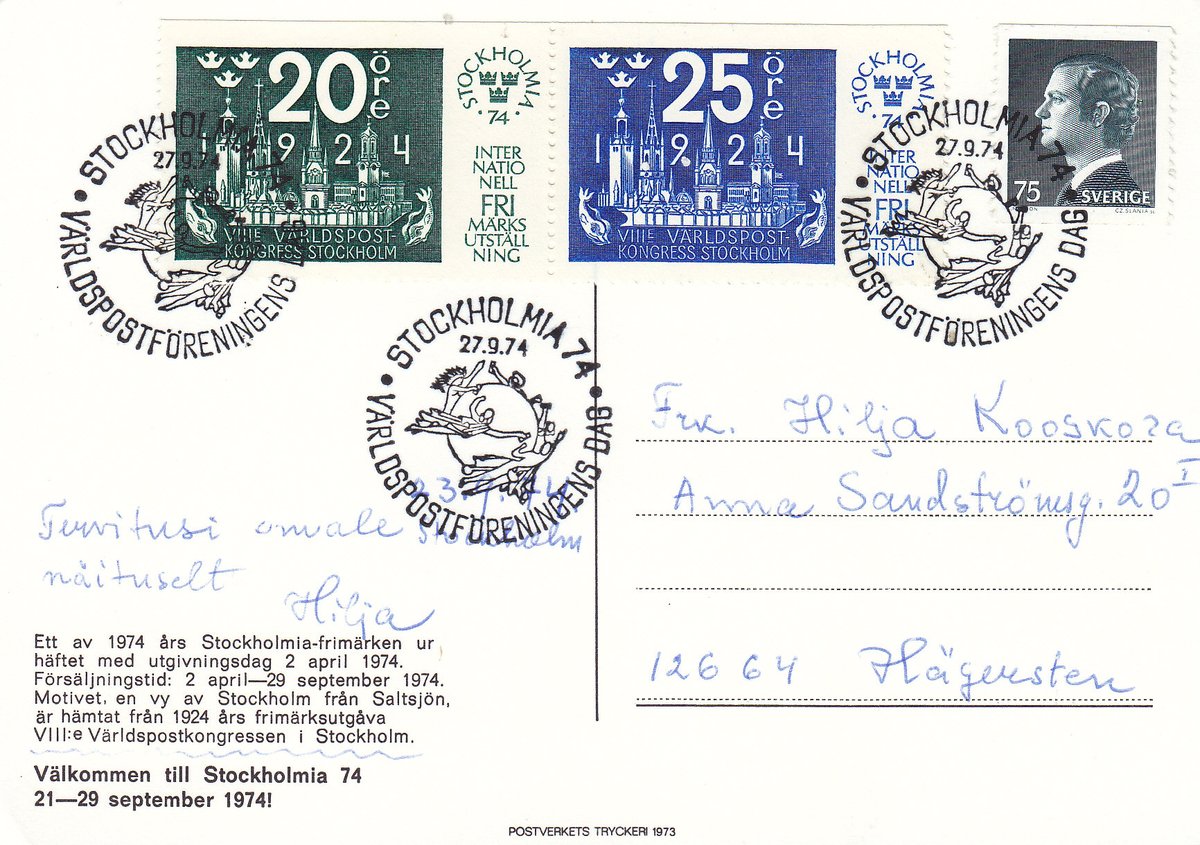 20 öre
1924
VIII:E VÄRLDSPOST-
KONGRESS STOCKHOLM
STOCKHOLMIA
·74·
INTER
NATIO
NELL
FRI
MÄRKS
UTSTÄLL
NING
25 öre
1924
VIII:E VÄRLDSPOST-
KONGRESS STOCKHOLM
STOCKHOLMIA
·74·
INTER
NATIO
NELL
FRI
MÄRKS
UTSTÄLL
NING
75
SVERIGE
CZ.SLANIA SC
STOCKHOLMIA 74
27.9.74
VÄRLDSPOSTFÖRENINGENS DAG
STOCKHOLMIA 74
27.9.74
VÄRLDSPOSTFÖRENINGENS DAG
STOCKHOLMIA 74
27.9.74
VÄRLDSPOSTFÖRENINGENS DAG
23.9.74
Stockholm
Tervitusi omale
näituselt
Hilja
Frk. Hilja Kooskora
Anna Sandströmsg. 20 I
126 64 Hägersten
Ett av 1974 års Stockholmia-frimärken ur
häftet med utgivningsdag 2 april 1974.
Försäljningstid: 2 april—29 september 1974.
Motivet, en vy av Stockholm från Saltsjön,
är hämtat från 1924 års frimärksutgåva
VIII:e Världspostkongressen i Stockholm.
Välkommen till Stockholmia 74
21—29 september 1974!
POSTVERKETS TRYCKERI 1973